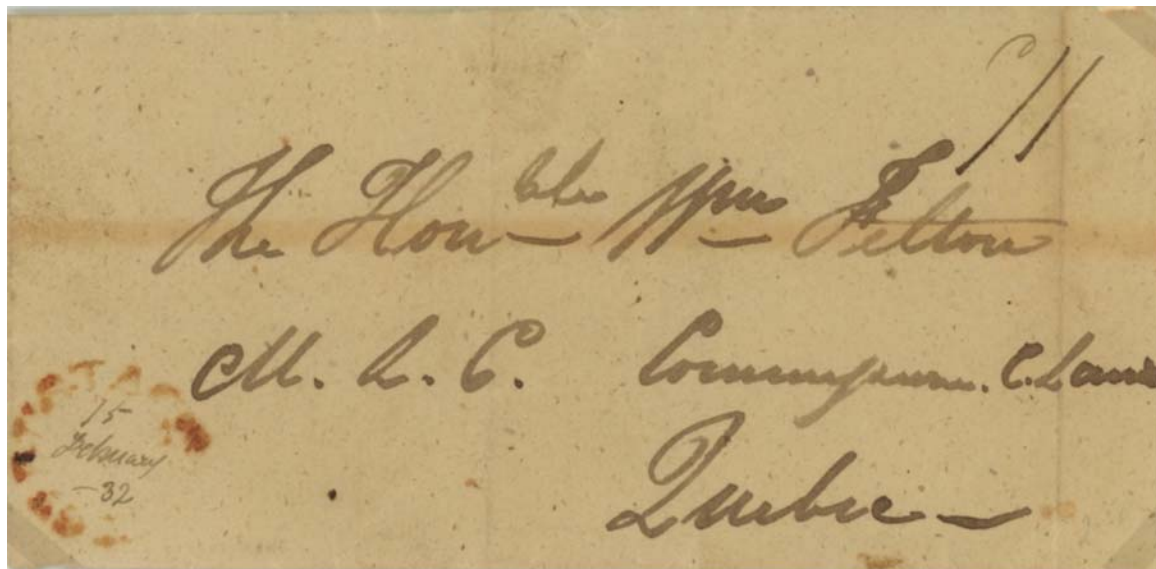 11
The Hon^ble Wm Felton
M. L. C. Commissioner. C. Land
Quebec
15
February
-32